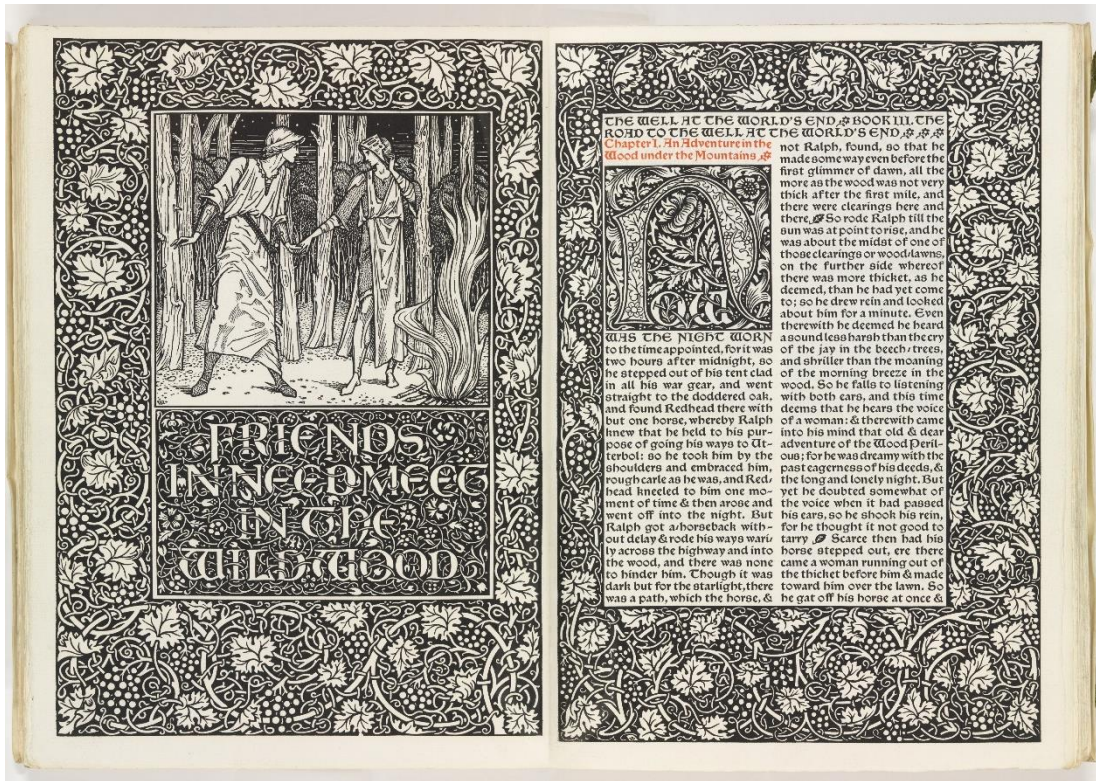 FRIENDS
IN NEED MEET
IN THE
WILD WOOD
THE WELL AT THE WORLD'S END BOOK III. THE
ROAD TO THE WELL AT THE WORLD'S END
Chapter I. An Adventure in the
Wood under the Mountains
Now
WAS THE NIGHT WORN
to the time appointed, for it was
two hours after midnight, so
he stepped out of his tent clad
in all his war gear, and went
straight to the doddered oak,
and found Redhead there with
but one horse, whereby Ralph
knew that he held to his pur-
pose of going his ways to Ut-
terbol: so he took him by the
shoulders and embraced him,
rough carle as he was, and Red-
head kneeled to him one mo-
ment of time & then arose and
went off into the night. But
Ralph got a-horseback with-
out delay & rode his ways wari-
ly across the highway and into
the wood, and there was none
to hinder him. Though it was
dark but for the starlight, there
was a path, which the horse, &
not Ralph, found, so that he
made some way even before the
first glimmer of dawn, all the
more as the wood was not very
thick after the first mile, and
there were clearings here and
there. So rode Ralph till the
sun was at point to rise, and he
was about the midst of one of
those clearings or wood-lawns,
on the further side whereof
there was more thicket, as he
deemed, than he had yet come
to; so he drew rein and looked
about him for a minute. Even
therewith he deemed he heard
a sound less harsh than the cry
of the jay in the beech-trees,
and shriller than the moaning
of the morning breeze in the
wood. So he falls to listening
with both ears, and this time
deems that he hears the voice
of a woman: & therewith came
into his mind that old & dear
adventure of the Wood Peril-
ous; for he was dreamy with the
past eagerness of his deeds, &
the long and lonely night. But
yet he doubted somewhat of
the voice when it had passed
his ears, so he shook his rein,
for he thought it not good to
tarry. Scarce then had his
horse stepped out, ere there
came a woman running out of
the thicket before him & made
toward him over the lawn. So
he gat off his horse at once &